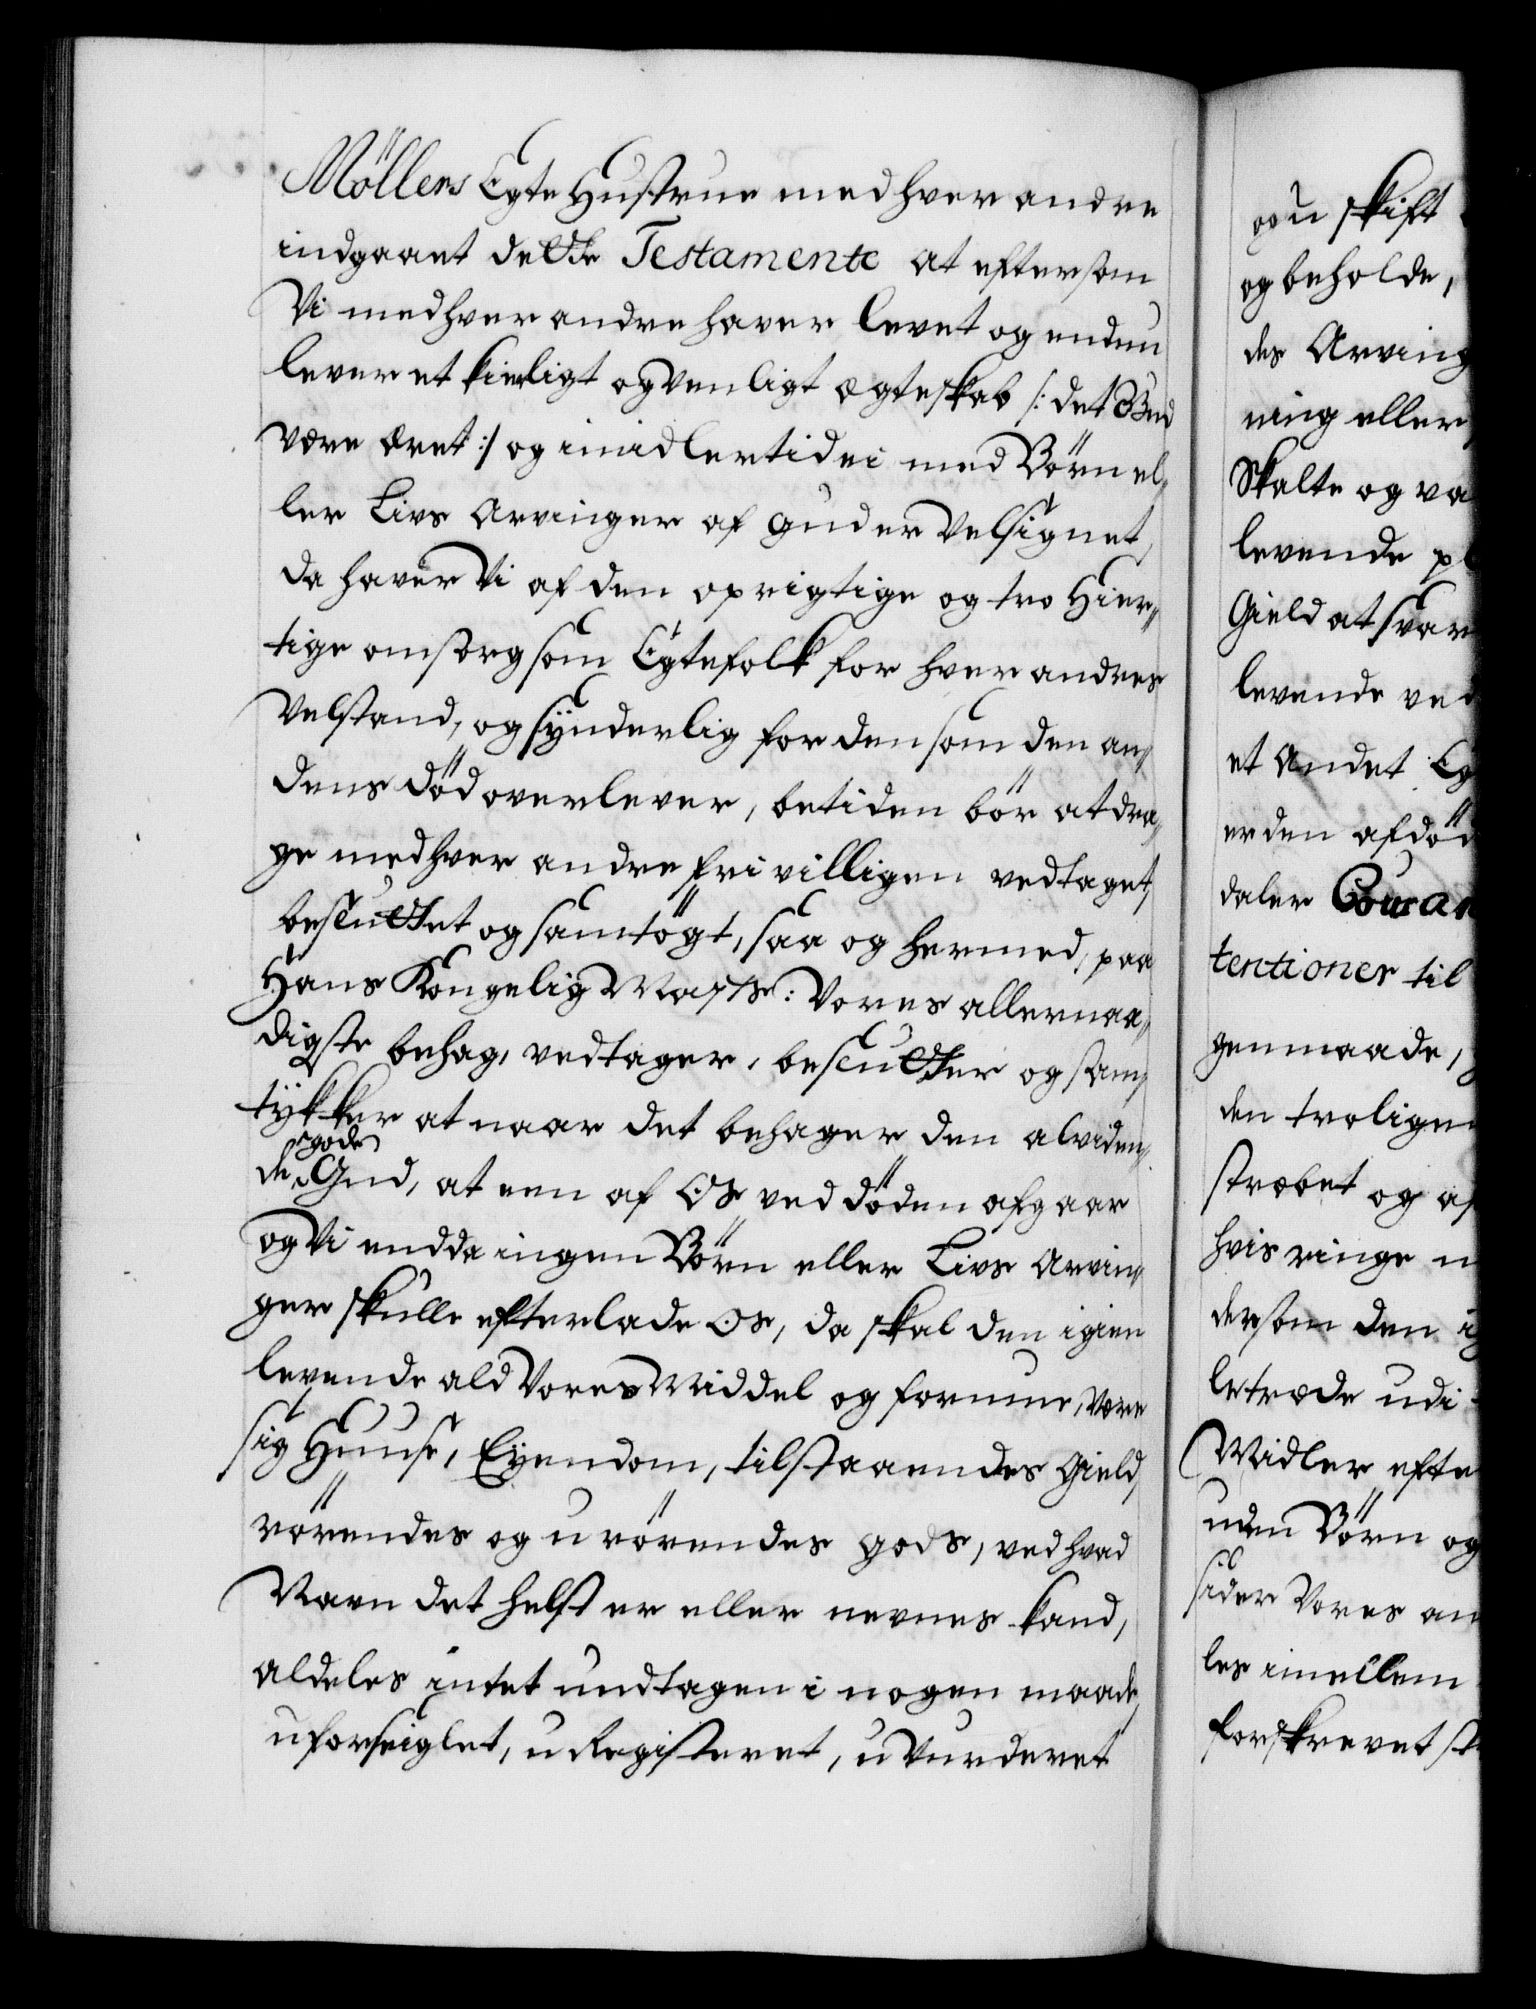 Möllers Egte Hustrue med hver andre
indgaaet dette Testamente at eftersom
Vi med hver andre haver levet og endnu
lever et kierligt og venligt ægteskab /: det Gud
være æret :/ og imidlertid ei med Börn el„
ler Livs Arvinger af Gud er velsignet,
da haver Vi af den oprigtige og tro Hier„
tige omsorg som Egtefolk for hver andres
Velstand, og synderlig for den som den an„
dens död overlever, betiden bör at dra„
ge med hver andre frivilligen vedtaget,
besluttet og samtögt, saa og hermed, paa
Hans Kongelig Mayts: Vores allernaa„
digste behag, vedtager, beslutter og sam„
tykker at naar det behager den alviden„
de gode Gud, at een af Os ved döden afgaar
og Vi endda ingen Börn eller Livs Arvin„
ger skulle efterlade Os, da skal den igien
levende ald Vores Middel og formue, være
sig Huuse, Eyendom, tilstaaendes Gield,
rörendes og urörendes gods, ved hvad
Navn det helst er eller nevnes kand,
aldeles intet undtagen i nogen maade,
uforseiglet, uRegisteret, uVurderet
og u skift
og beholde,
des Arving
ning eller
Skalte og va
levende p
Gield at svar
levende ved
et Andet Eg
er den afdöd
daler Couran
tentioner til
gen maade,
den troligen
stræbet og af
hvis ringe
dersom den ig
letræde udi
Midler efte
uden Börn og
sider Vores an
les imellem
forskrevet st